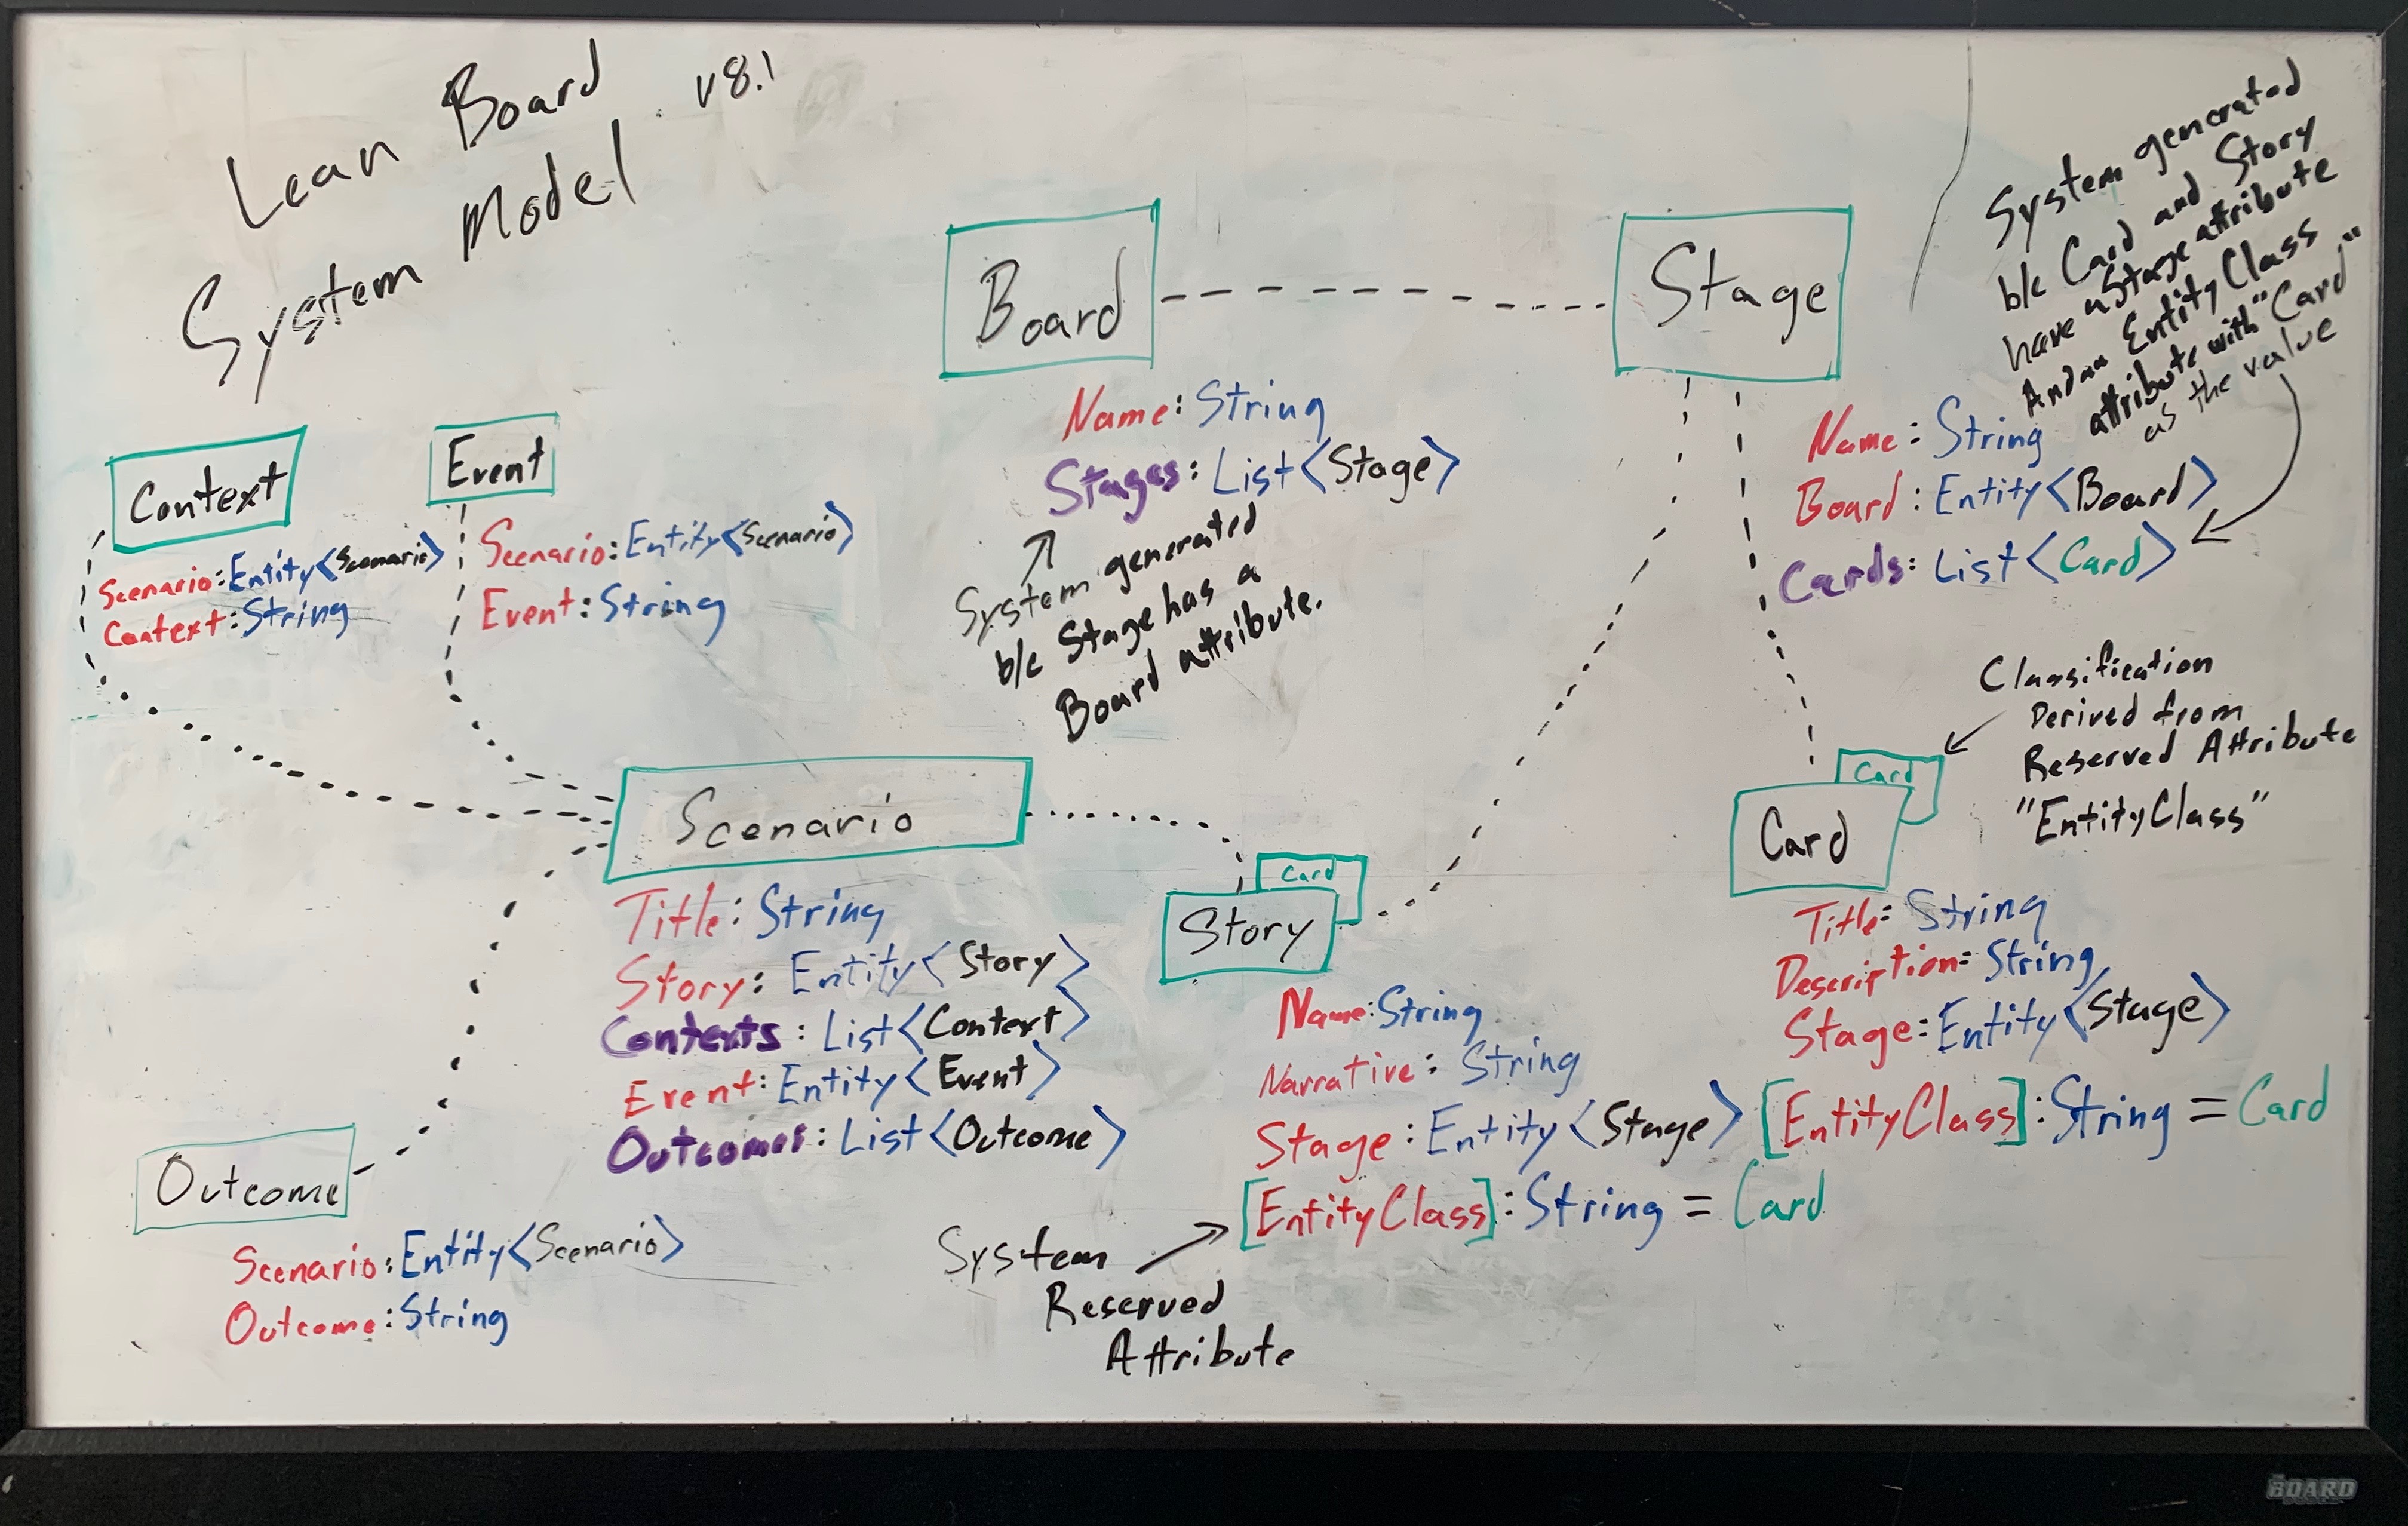 Lean Board
System Model v8.1
Board
Name: String
Stages: List<Stage>
System generated
b/c Stage has a
Board attribute.
Stage
Name: String
Board: Entity<Board>
Cards: List<Card>
System generated
b/c Card and Story
have a Stage attribute
And an EntityClass
attribute with "Card"
as the value
Context
Scenario: Entity<Scenario>
Context: String
Event
Scenario: Entity<Scenario>
Event: String
Scenario
Title: String
Story: Entity<Story>
Contexts: List<Context>
Event: Entity<Event>
Outcomes: List<Outcome>
Card
Story
Name: String
Narrative: String
Stage: Entity<Stage>
[EntityClass]: String = Card
System
Reserved
Attribute
Card
Card
Classification
Derived from
Reserved Attribute
"EntityClass"
Title: String
Description: String
Stage: Entity<Stage>
[EntityClass]: String = Card
Outcome
Scenario: Entity<Scenario>
Outcome: String
BOARD